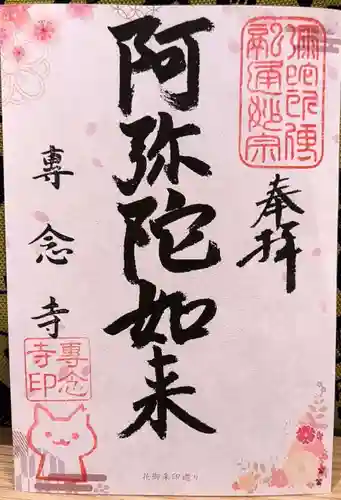 奉拝
阿弥陀如来
專念寺
專念
寺印
花御朱印巡り